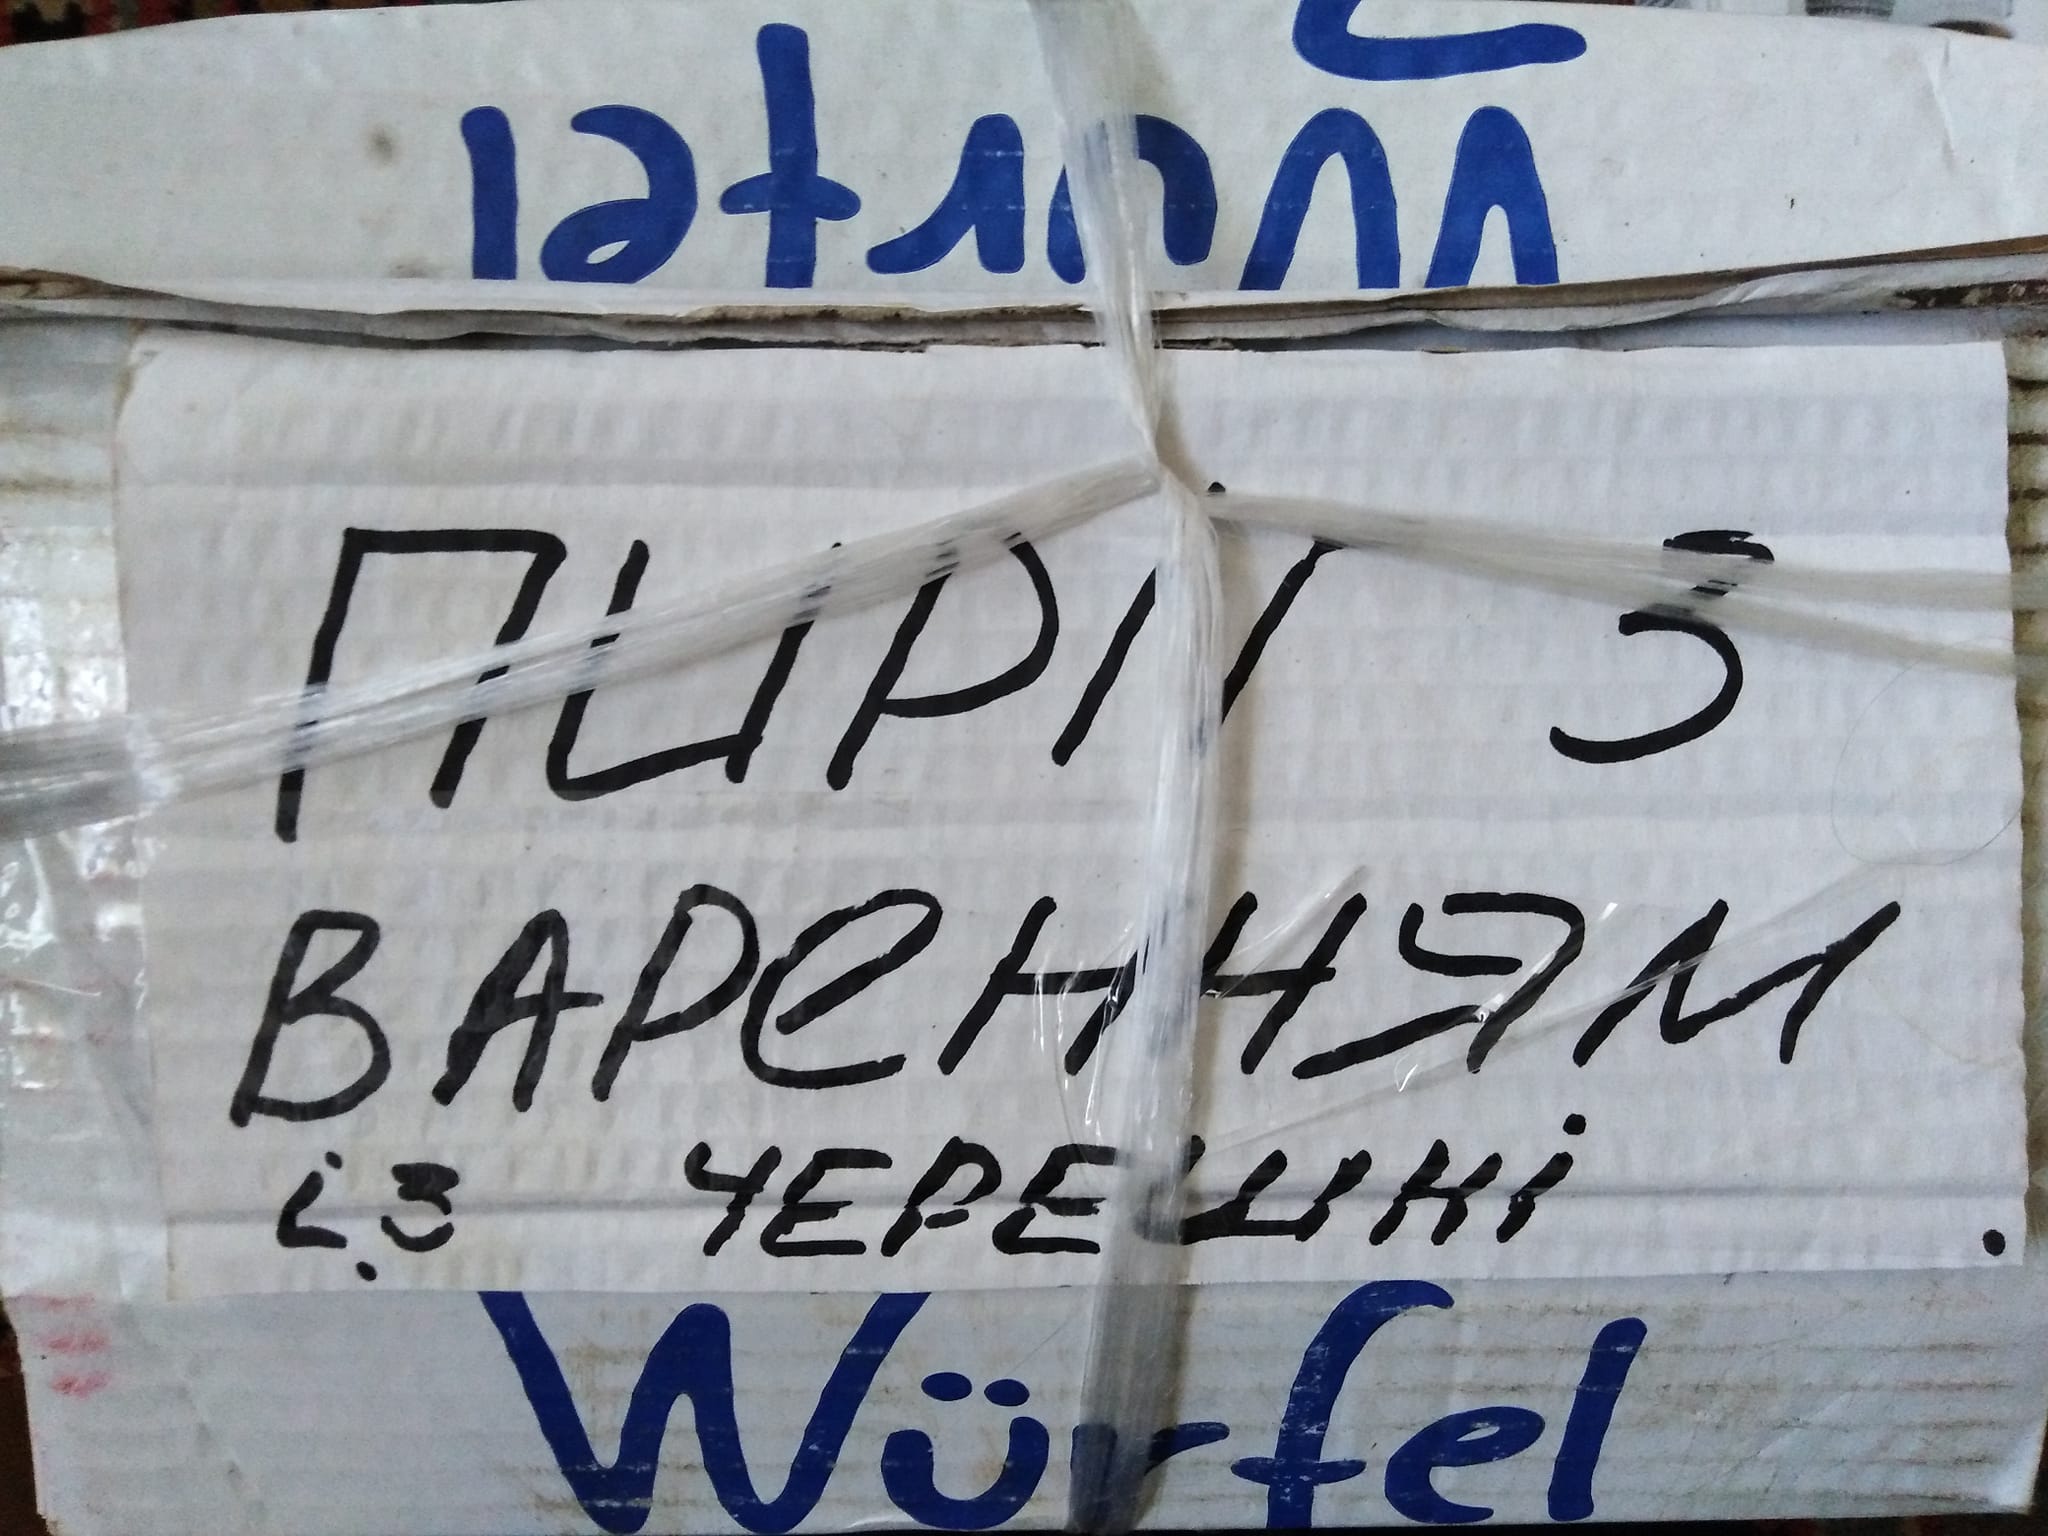 Würfel
ПИРІГ З
ВАРЕННЯМ
із ЧЕРЕШНІ.
Würfel